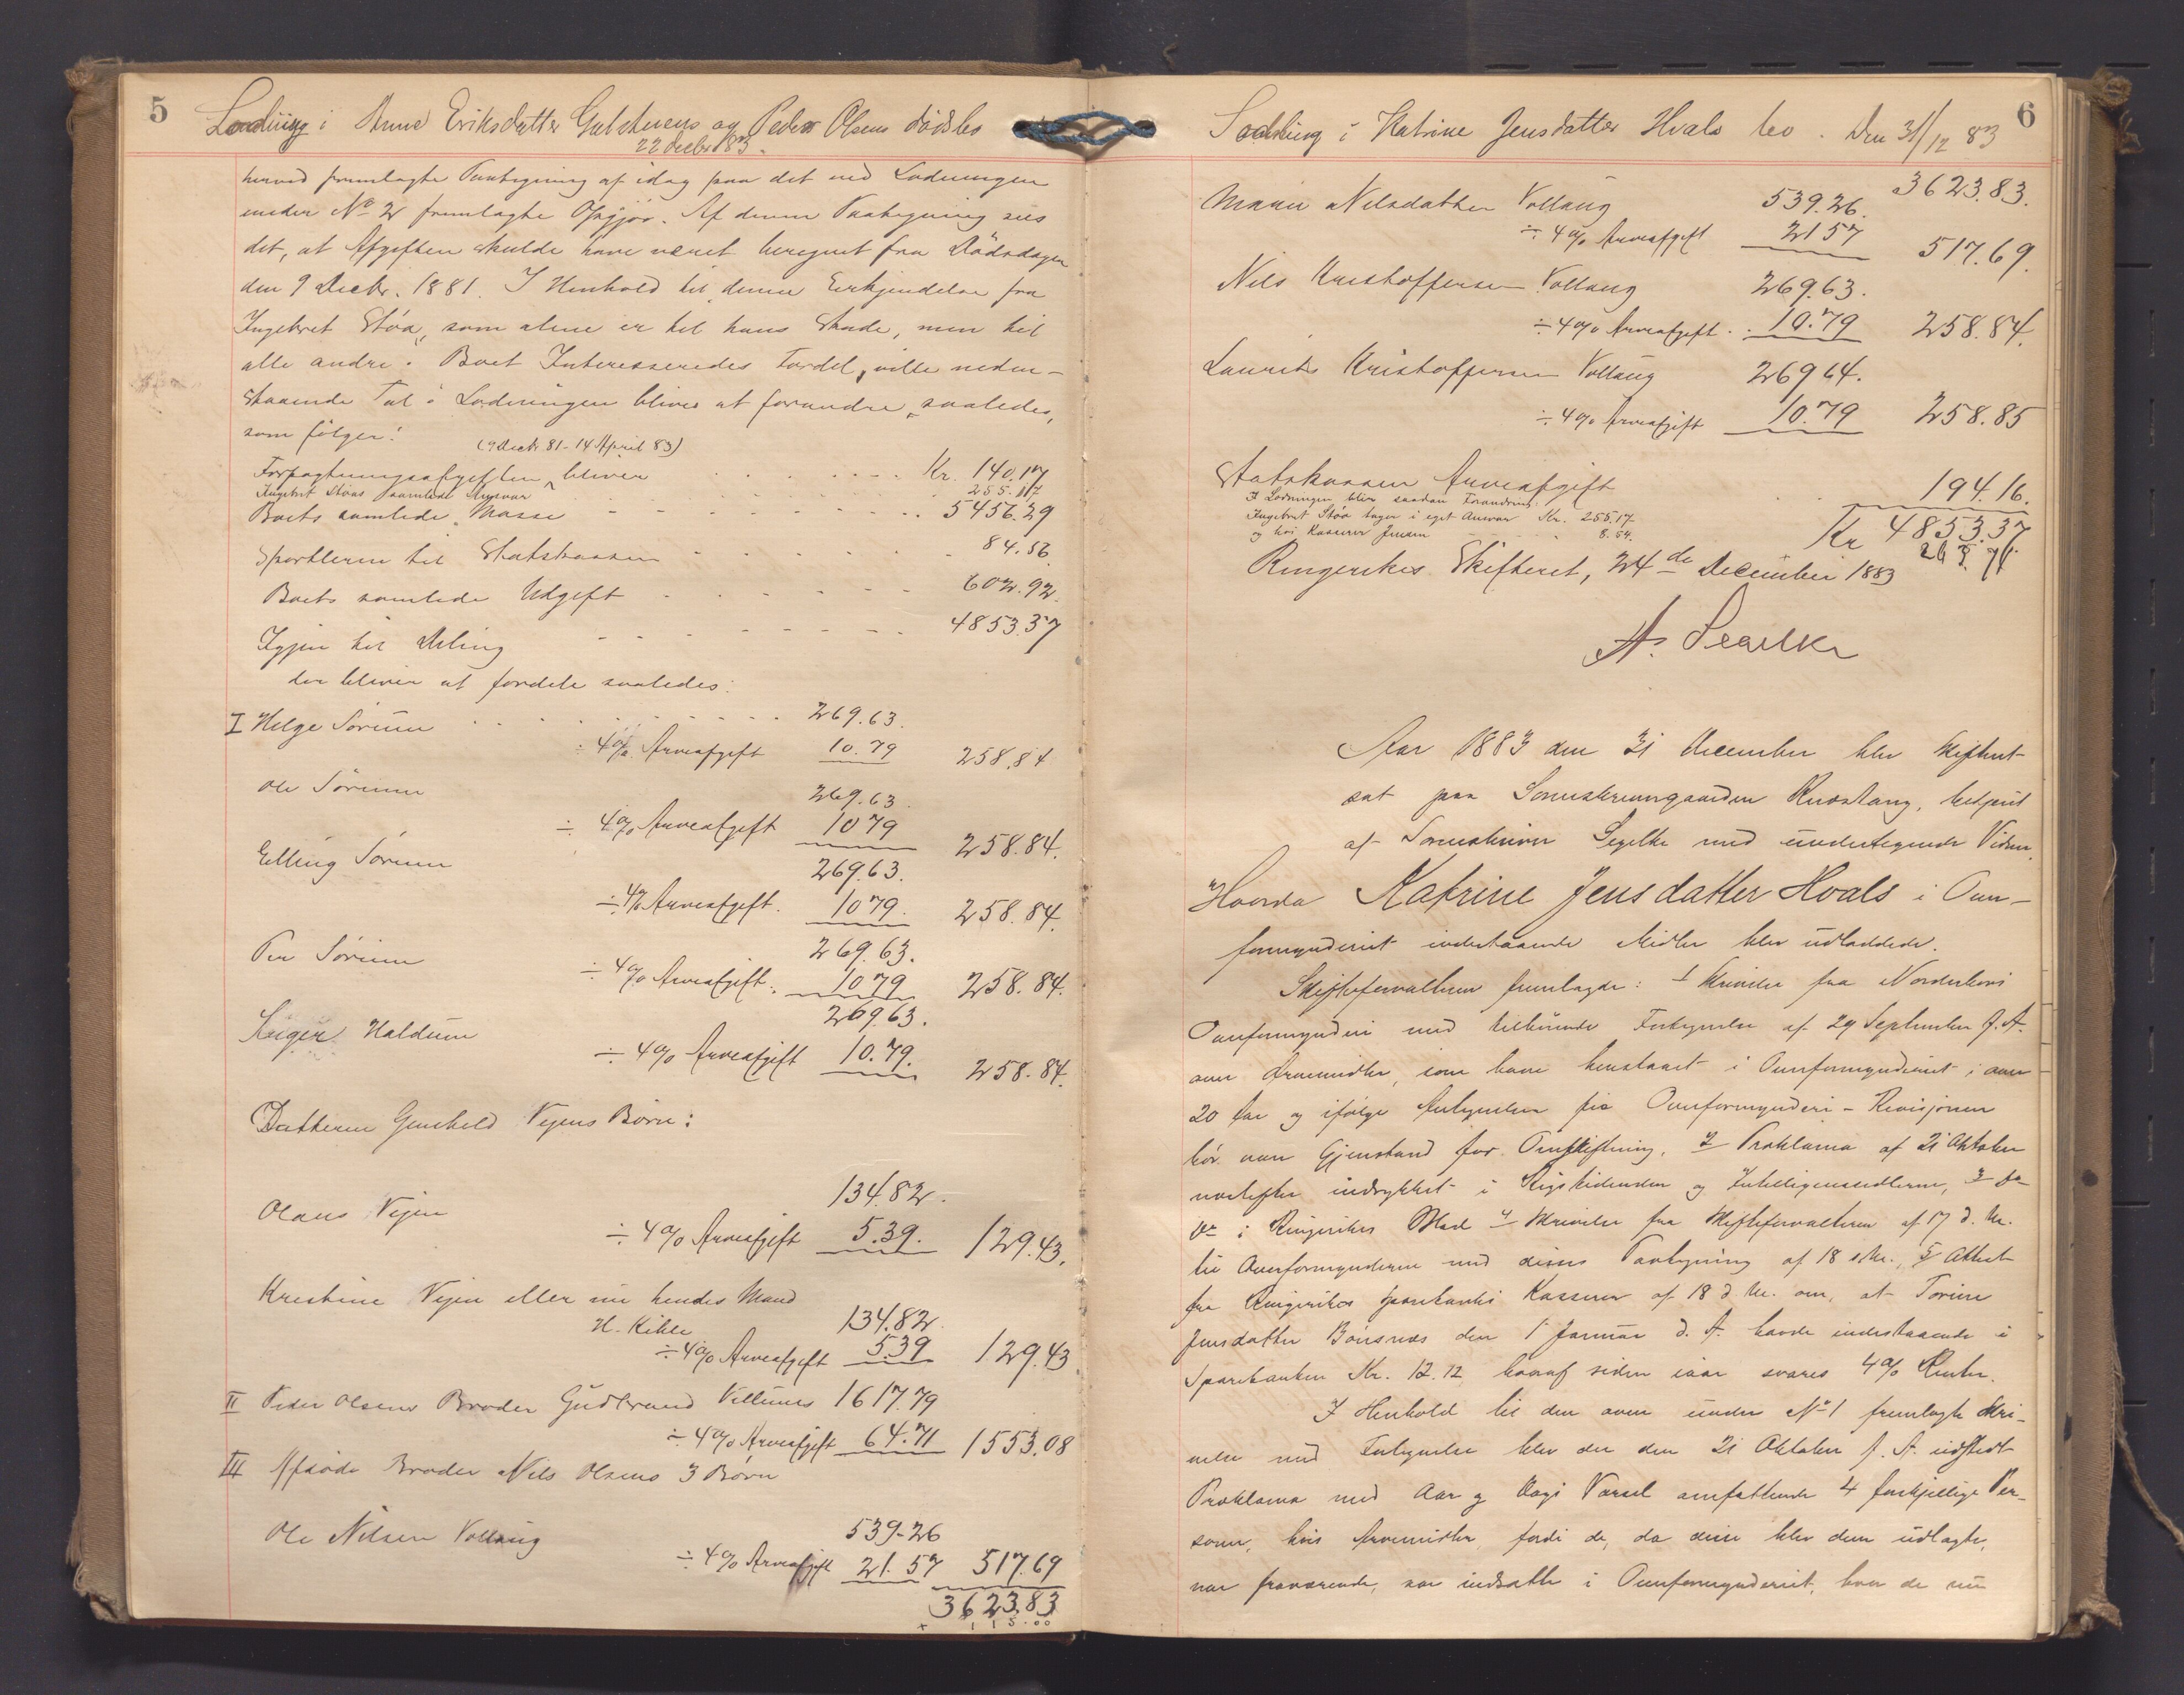 5
Lodning i Anne Eriksdatter Gulsteens og Peder Olsens dødsbo
22 Decbr 83.
herved fremlagte Paategning af idag paa det ved Lodningen
under No 2 fremlagte Opgjør. Af denne Paategning sees
det, at Afgiften skulde have været beregnet fra Dødsdagen
den 9 Decbr. 1881. I Henhold til denne Erkjendelse fra
Ingebret Støa, som alene er til hans Skade, men til
alle andre i Boet Interesseredes Fordel, ville neden-
staaende Tal i Lodningen blive at forandre saaledes,
som følger:
(9 Decbr 81 - 14 April 83)
Forpagtningsafgiften bliver Kr. 140.17
Ingebret Støas samlede Ansvar 255.17
Boets samlede Masse 5456.29
Sportlerne til Statskassen 84.56
Boets samlede Udgift 602.92.
Igjen til Deling 4853.37
der bliver at fordele saaledes:
I Helge Sørum 269.63.
÷ 4% Arveafgift 10.79 258.84
Ole Sørum 269.63.
÷ 4% Arveafgift 1079 258.84.
Elling Sørum 269.63.
÷ 4% Arveafgift. 1079. 258.84.
Per Sørum 269.63.
÷ 4% Arveafgift. 1079 258.84.
Haldum 269.63.
÷ 4% Arveafgift 10.79. 258.84.
Datteren Gunhild Vejens Børn:
Olaus Vejen 134.82.
÷ 4% Arveafgift 5.39. 129.43.
Kristine Vejen eller nu hendes Mand
H. Kihle 134.82.
÷ 4% Arveafgift 539 129.43
II Peder Olsens Broder Gudbrand Villums 1617.79
÷ 4% Arveafgift 64.71 1553.08
III Afdøde Broder Nils Olsens 3 Børn
Ole Nilsen Vollaug 539-26
÷ 4% Arveafgift 21.57 517.69
3623.83
+ 115.00
6
Lodning i Katrine Jensdatter Hvals bo. Den 31/12 83
3623.83.
Maria Nilsdatter Vollaug 539.26.
÷ 4% Arveafgift 2157 517.69.
Nils Kristoffersen Vollaug 269.63.
÷ 4% Arveafgift. 10.79 258.84.
Laurits Kristoffersen Vollaug 26964.
÷ 4% Arveafgift 10.79 258.85
Statskassen Arveafgift 194.16.
I Lodningen blir saadan Forandring:
Ingebret Støa tager i eget Ansvar Kr. 255.17
og hos Kasserer Jensen 8.54.
Kr 4853.37
263.71.
Ringerikes Skifteret, 24de December 1883
A. Segelke
Aar 1883 den 31 December blev Skifteret
sat paa Sorenskrivergaarden Knestang, betjent
af Sorenskriver Segelke med undertegnede Vidner.
Hvorda Katrine Jensdatter Hvals i Over-
formynderiet indestaaende Midler blev udloddede.
Skifteforvalteren fremlagde: 1 Skrivelse fra Norderhovs
Overformynderi med tilhørende Fortegnelse af 29 September f. A.
over Arvemidler, som have henstaaet i Overformynderiet i over
20 Aar og ifølge Antegnelse fra Overformynderi-Revisionen
bør være Gjenstand for Omskiftning, 2 Proklama af 21 Oktober
næstefter indrykket i Rigstidenden og Intelligenssedlerne, 3 do
do i Ringerikes Blad 4 Skrivelse fra Skifteforvalteren af 17 d. M.
til Overformynderne med disses Paategning af 18 s. M., 5 Attest
fra Ringerikes Sparebanks Kasserer af 18 d. M. om, at Torine
Jensdatter Bønsnes den 1 Januar d. A. havde indestaaende i
Sparebanken Kr. 12.12, hvoraf siden iaar svares 4% Renter.
I Henhold til den oven under No 1 fremlagte Skri-
velse med Fortegnelse blev der den 21 Oktober f. A. udstedt
Proklama med Aar og Dags Varsel omfattende 4 forskjellige Per-
soner, hvis Arvemidler, fordi de, da disse blev dem udlagte,
var fraværende, var indsatte i Overformynderiet, hvor de nu